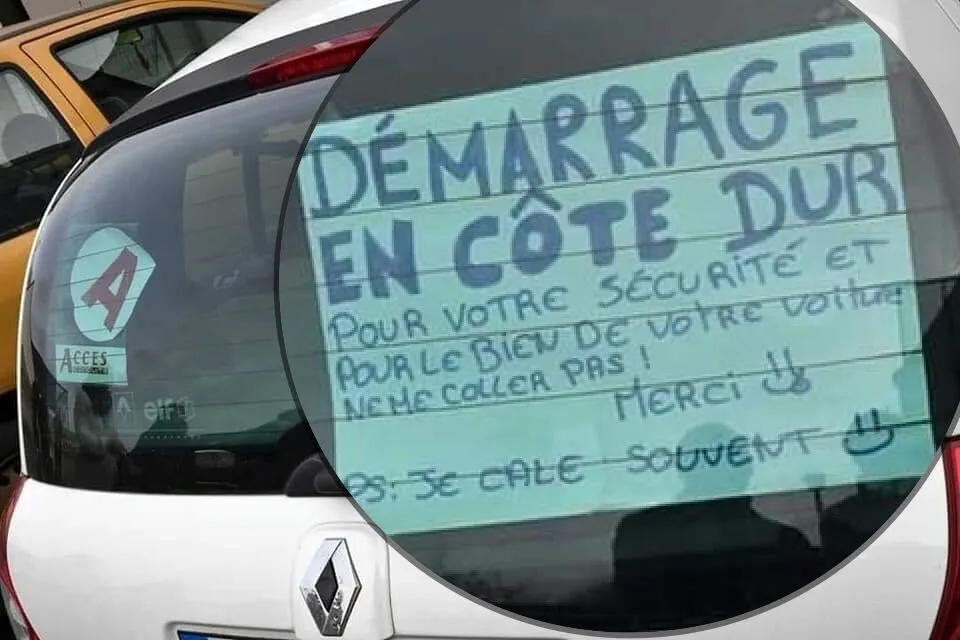 DÉMARRAGE
EN CÔTE DUR
POUR VOTRE SÉCURITÉ ET
POUR LE BIEN DE VOTRE VOITURE
NE ME COLLER PAS !
MERCI
PS: JE CALE SOUVENT
A
ACCES
elf